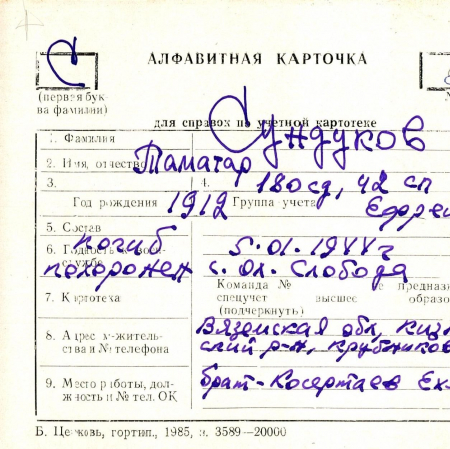 С
АЛФАВИТНАЯ КАРТОЧКА
(первая бук-
ва фамилии)
для справок по учетной картотеке
1. Фамилия Сундуков
2. Имя, отчество Таматар
3. 4. 180 сд, 42 сп
Год рождения 1912 Группа учета Ефрей
5. Состав погиб 5.01.1944г
6. Годность к воен
службе похоронен с. Ол. Слобода
7. Картотека
Команда № не предназ
спецучет высшее образо
(подчеркнуть)
8. Адрес м-житель-
ства и № телефона
Вяземская обл, Кизл
ский р-н, Крутиков
9. Место работы, дол-
жность и № тел. ОК
брат-Косертаев Ек
Б. Церковь, гортип., 1985, з. 3589—20000